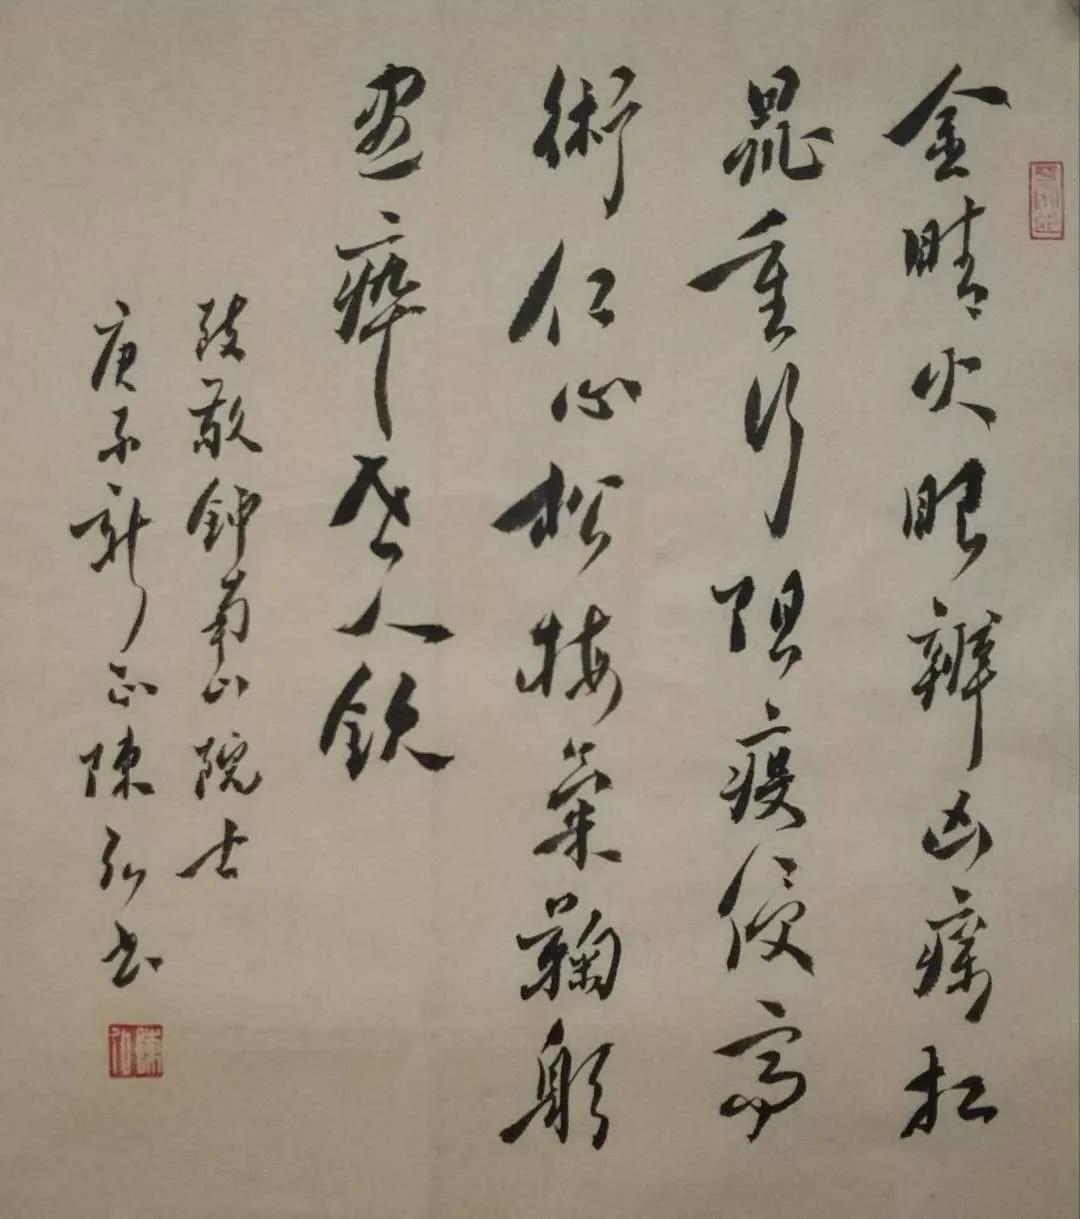 金睛火眼辨凶瘴扛
鼎重行阻疫侵高
術仁心松梅氣鞠躬
盡瘁世人欽
致敬鍾南山院士
庚子新正陳弘書